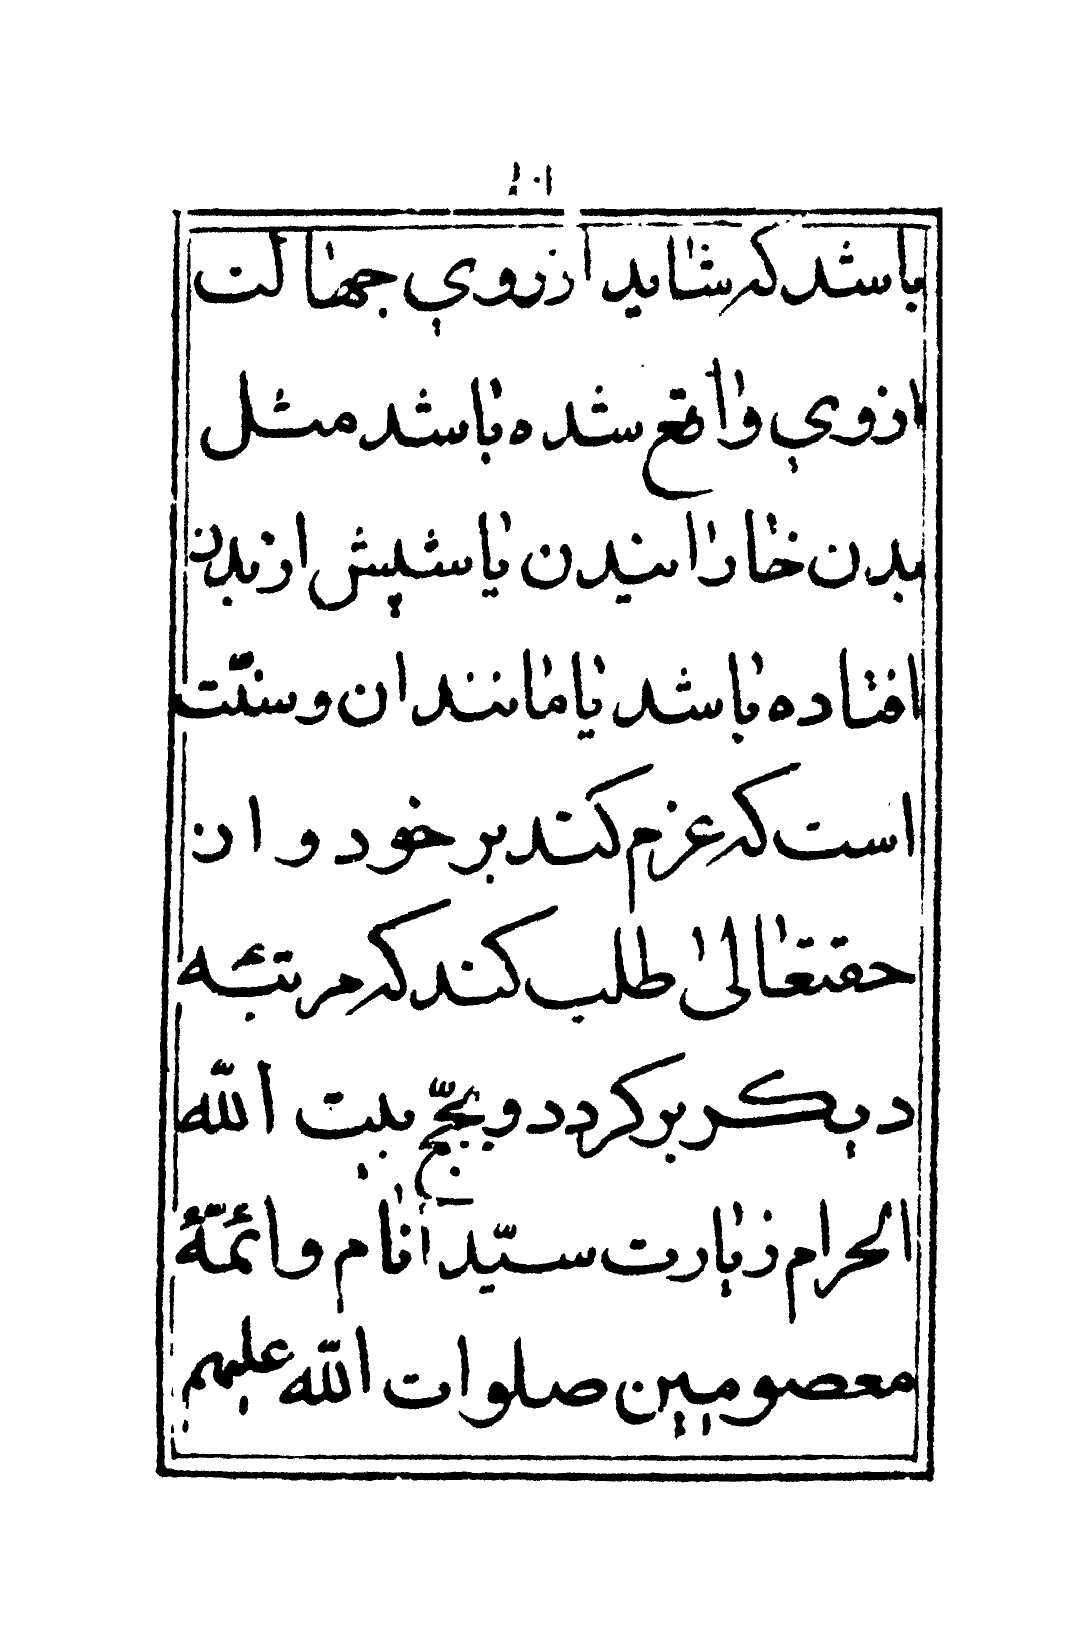 باشد که شاید از روی جهالت
از وی واقع شده باشد مثل
بدن خاراسیدن یا شپش از بدن
افتاده باشد یا مانند ان و سنّت
است که عزم کند بر خود و ان
حقتعالی طلب کند که مرتبهٔ
دیکر بر کردد و بحجّ بیت اللّه
الحرام زیارت سیّد أنام و ائمّهٔ
معصومین صلوات اللّه علیهم